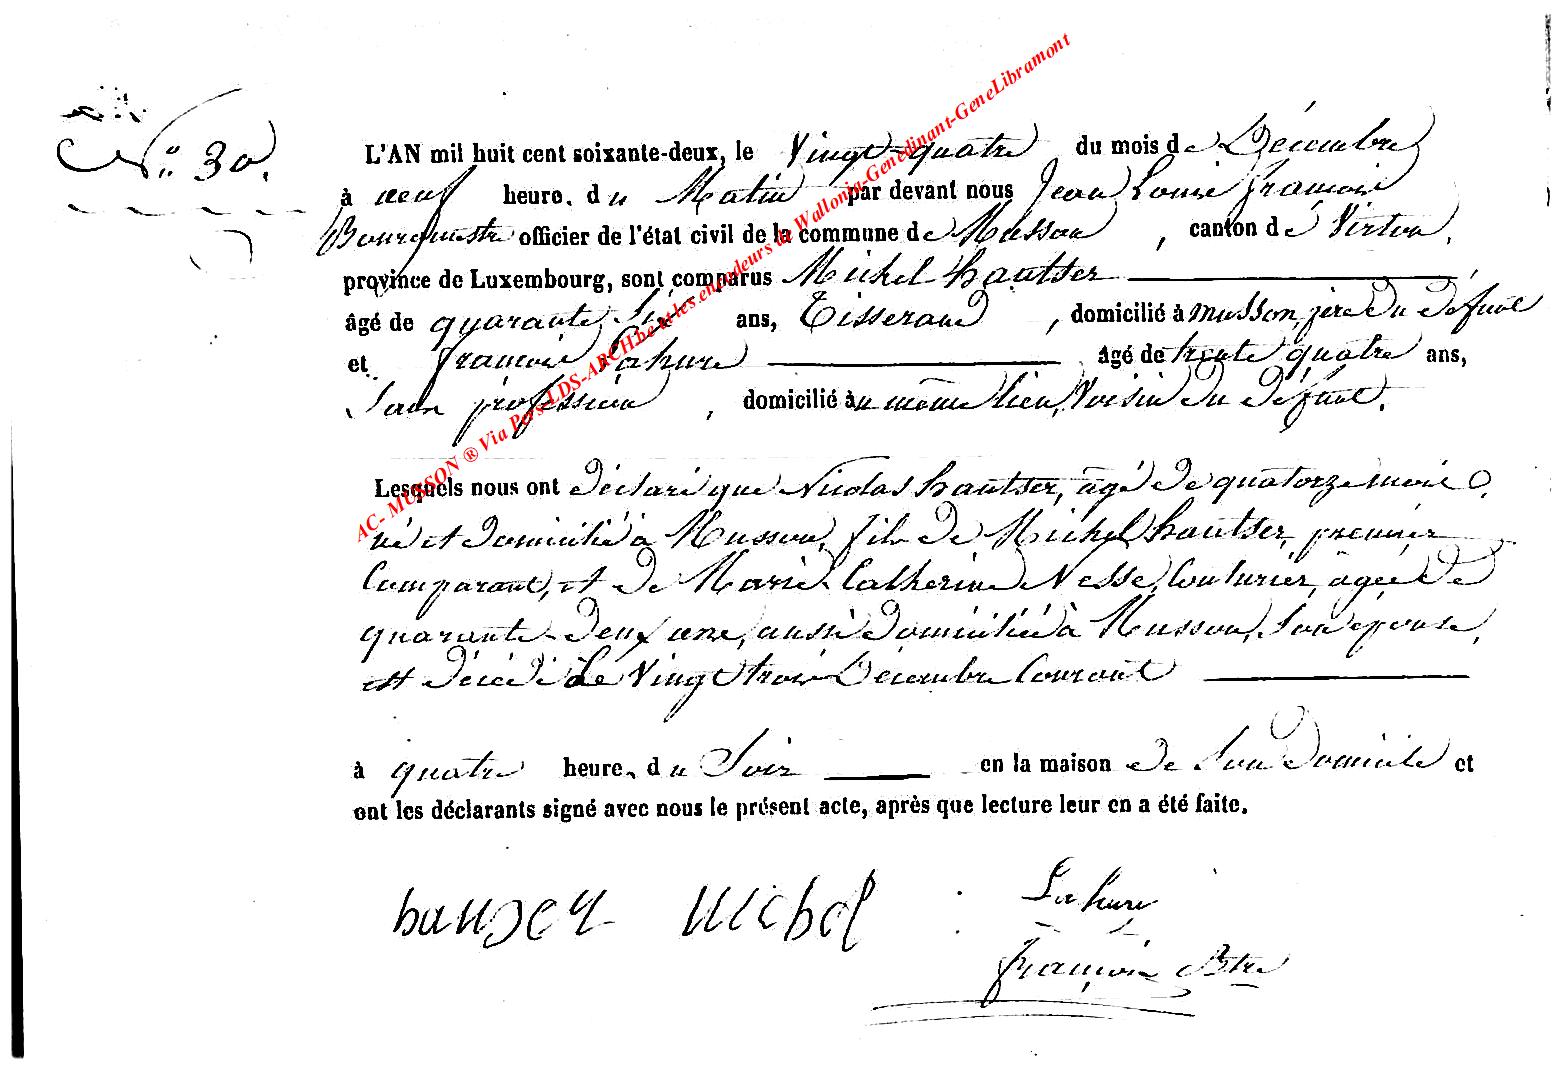 N° 30.
L'AN mil huit cent soixante-deux, le Vingt-quatre du mois de Décembre
à neuf heure. du Matin par devant nous Jean Louis François
Bourgmestre officier de l'état civil de la commune de Musson, canton de Virton,
province de Luxembourg, sont comparus Michel hautser
âgé de quarante Six ans, Tisserand, domicilié à Musson, père du défunt
et François Lahure âgé de trente quatre ans,
Sans profession, domicilié au même lieu, Voisin du défunt.
Lesquels nous ont déclaré que Nicolas hautser, agé de quatorze mois
né et domicilié à Musson, fils de Michel hautser, premier
Comparant, et de Marie-Catherine Nesse, Couturier, agée de
quarante-deux ans, aussi domiciliée à Musson, Son épouse,
est décédé Le Vingt trois Décembre Courant
à quatre heure. du Soir en la maison de Son Domicile et
ont les déclarants signé avec nous le présent acte, après que lecture leur en a été faite.
hauser Michel
Lahure
François Btre
AC- MUSSON ® Via Pers-LDS-ARCH.be et les encodeurs de Wallonia-Genedinant-GeneLibramont